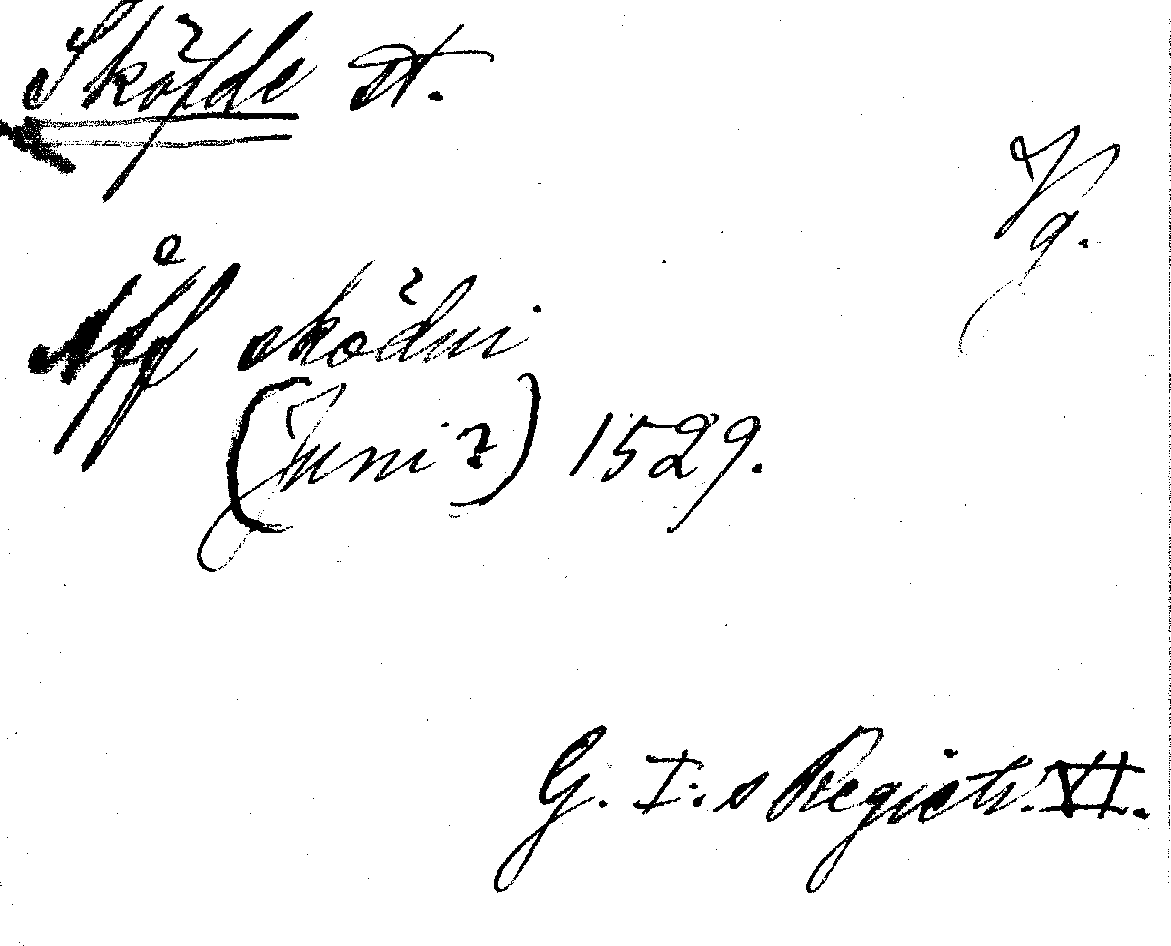 Sköfde st.
Vg.
Åff sködui
(Juni?) 1529.
G. I:s Registr. VI.